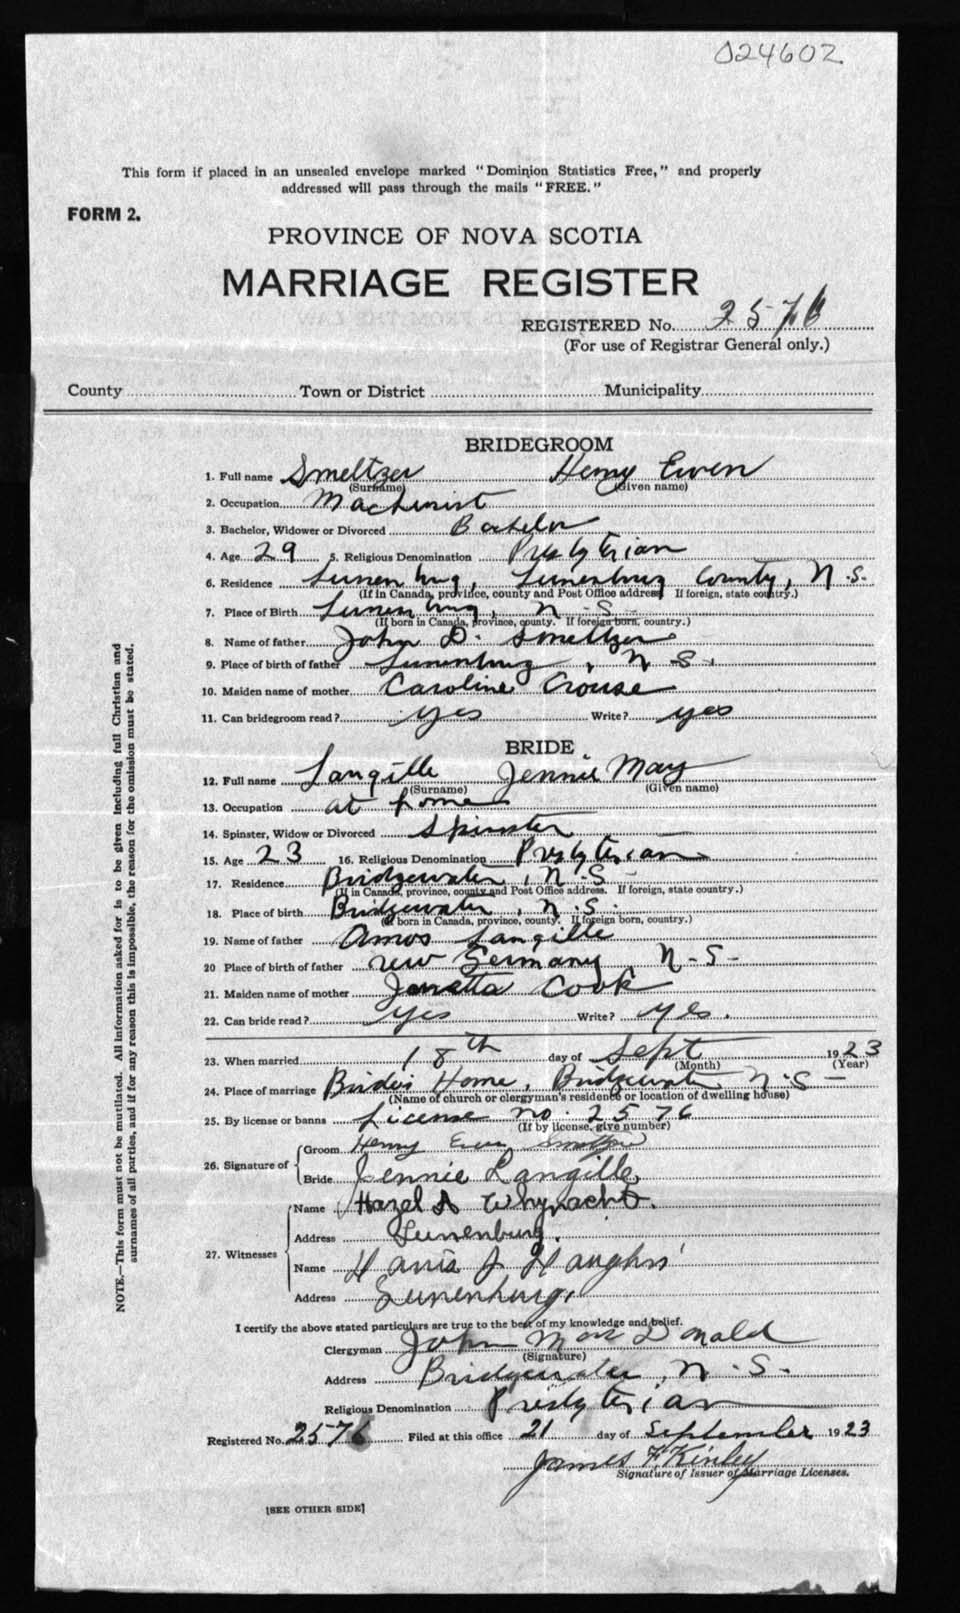 024602
This form if placed in an unsealed envelope marked "Dominion Statistics Free," and properly
addressed will pass through the mails "FREE."
FORM 2.
PROVINCE OF NOVA SCOTIA
MARRIAGE REGISTER
REGISTERED No. 2576
(For use of Registrar General only.)
County Town or District Municipality
BRIDEGROOM
1. Full name Smeltzer Henry Ewen
(Surname) (Given name)
2. Occupation Machinist
3. Bachelor, Widower or Divorced Bachelor
4. Age 29 5. Religious Denomination Presbyterian
6. Residence Lunenburg, Lunenburg County, N.S.
(If in Canada, province, county and Post Office address. If foreign, state country.)
7. Place of Birth Lunenburg, N.S.
(If born in Canada, province, county. If foreign born, country.)
8. Name of father John D. Smeltzer
9. Place of birth of father Lunenburg, N.S.
10. Maiden name of mother Caroline Crouse
11. Can bridegroom read? yes Write? yes
BRIDE
12. Full name Langille Jennie May
(Surname) (Given name)
13. Occupation at home
14. Spinster, Widow or Divorced Spinster
15. Age 23 16. Religious Denomination Presbyterian
17. Residence Bridgewater, N.S.
(If in Canada, province, county and Post Office address. If foreign, state country.)
18. Place of birth Bridgewater, N.S.
(If born in Canada, province, county. If foreign born, country.)
19. Name of father Amos Langille
20 Place of birth of father New Germany, N.S.
21. Maiden name of mother Janetta Cook
22. Can bride read? yes Write? yes.
23. When married 18th day of Sept 1923
(Month) (Year)
24. Place of marriage Bride's Home, Bridgewater N.S.
(Name of church or clergyman's residence or location of dwelling house)
25. By license or banns License no. 2576
(If by license, give number)
26. Signature of Groom Henry Ewen Smeltzer
Bride Jennie Langille
27. Witnesses Name Hazel A Whynacht.
Address Lunenburg.
Name Harris J
Address Lunenburg.
I certify the above stated particulars are true to the best of my knowledge and belief.
Clergyman John MacDonald
(Signature)
Address Bridgewater, N.S.
Religious Denomination Presbyterian
Registered No. 2576 Filed at this office 21 day of September 1923
James F. Kinley
Signature of Issuer of Marriage Licenses.
[SEE OTHER SIDE]
NOTE.—This form must not be mutilated. All information asked for is to be given including full Christian and
surnames of all parties, and if for any reason this is impossible, the reason for the omission must be stated.